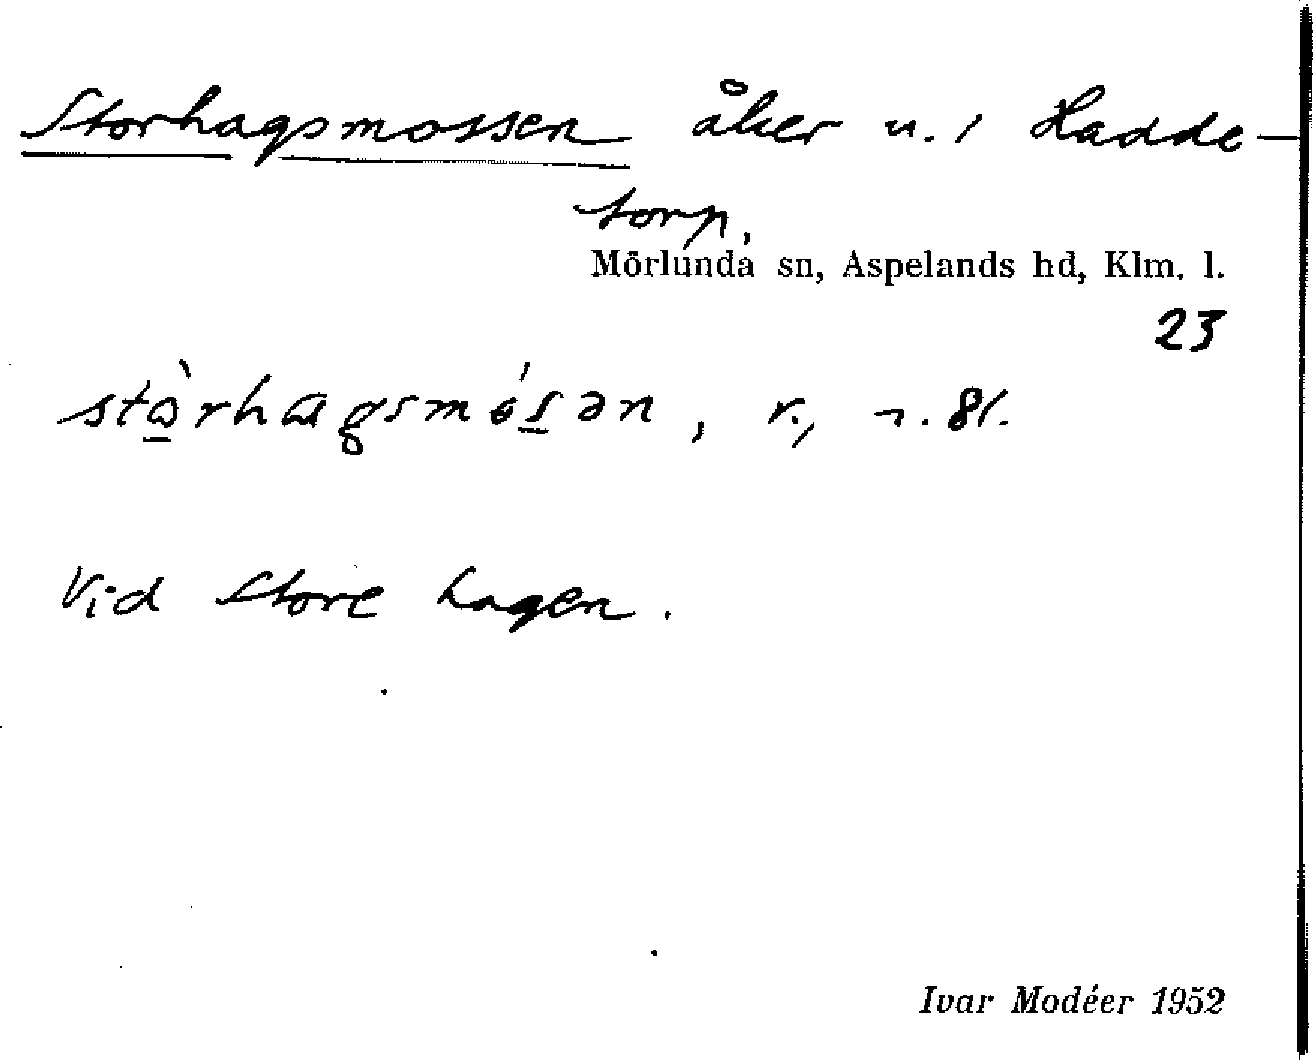 Storhagsmossen åker u. 1 Hadde-
torp,
Mörlunda sn, Aspelands hd, Klm. l.
23
stɷ̀rhɑgsmósən, r., n. 81.
Vid Store hagen.
Ivar Modéer 1952